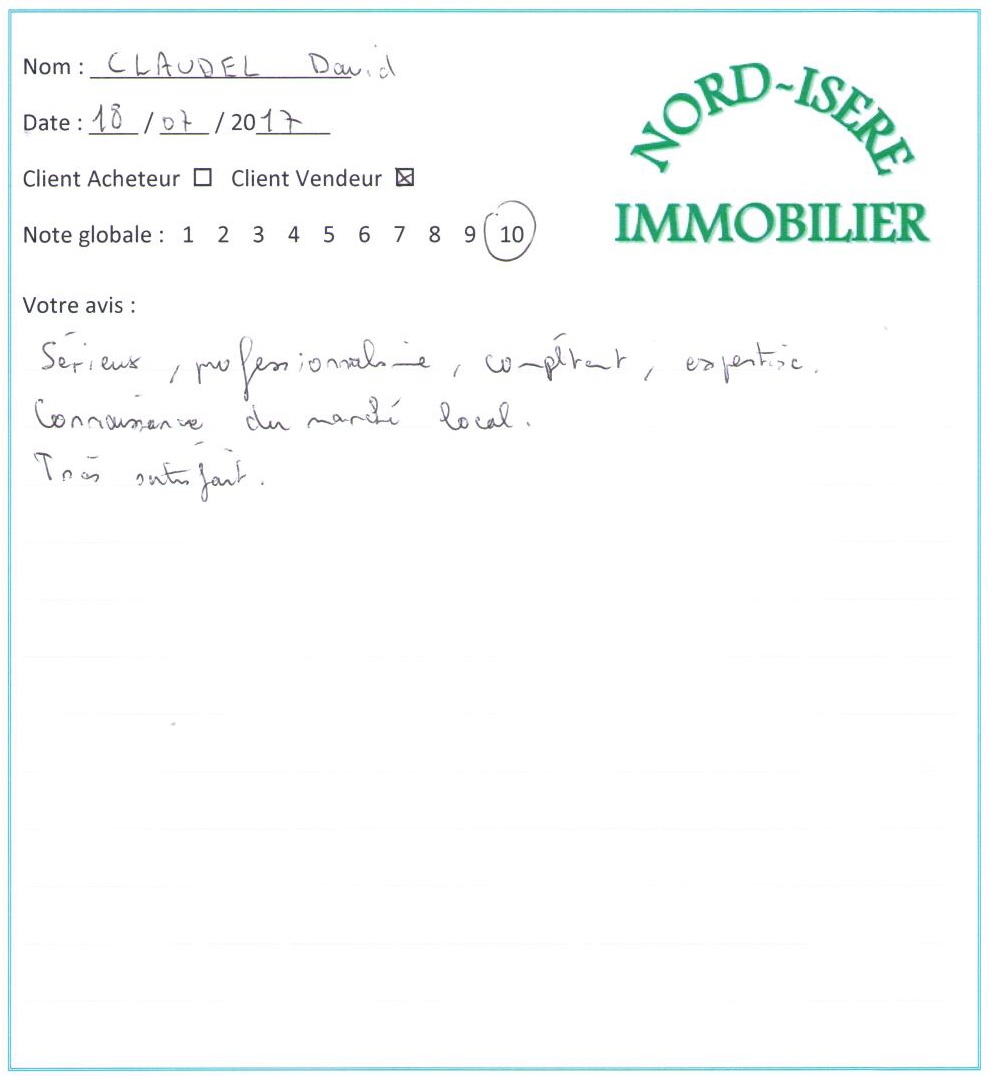 Nom : CLAUDEL David
Date : 18 / 07 / 2017
Client Acheteur ☐ Client Vendeur ☒
Note globale : 1 2 3 4 5 6 7 8 9 10
NORD-ISERE
IMMOBILIER
Votre avis :
Sérieux, professionnalisme, compétent, expertise.
Connaissance du marché local.
Très satisfait.